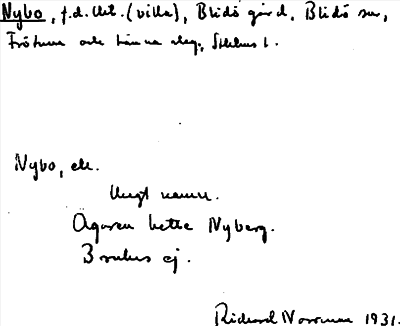 Nybo, f.d. lht. (villa), Blidö gård, Blidö sn,
Frötuna och Länna skg, Sthlms l.
Nybo, ett.
Ungt namn.
Ägaren hette Nyberg.
Brukas ej.
Rickard Norrman 1931.